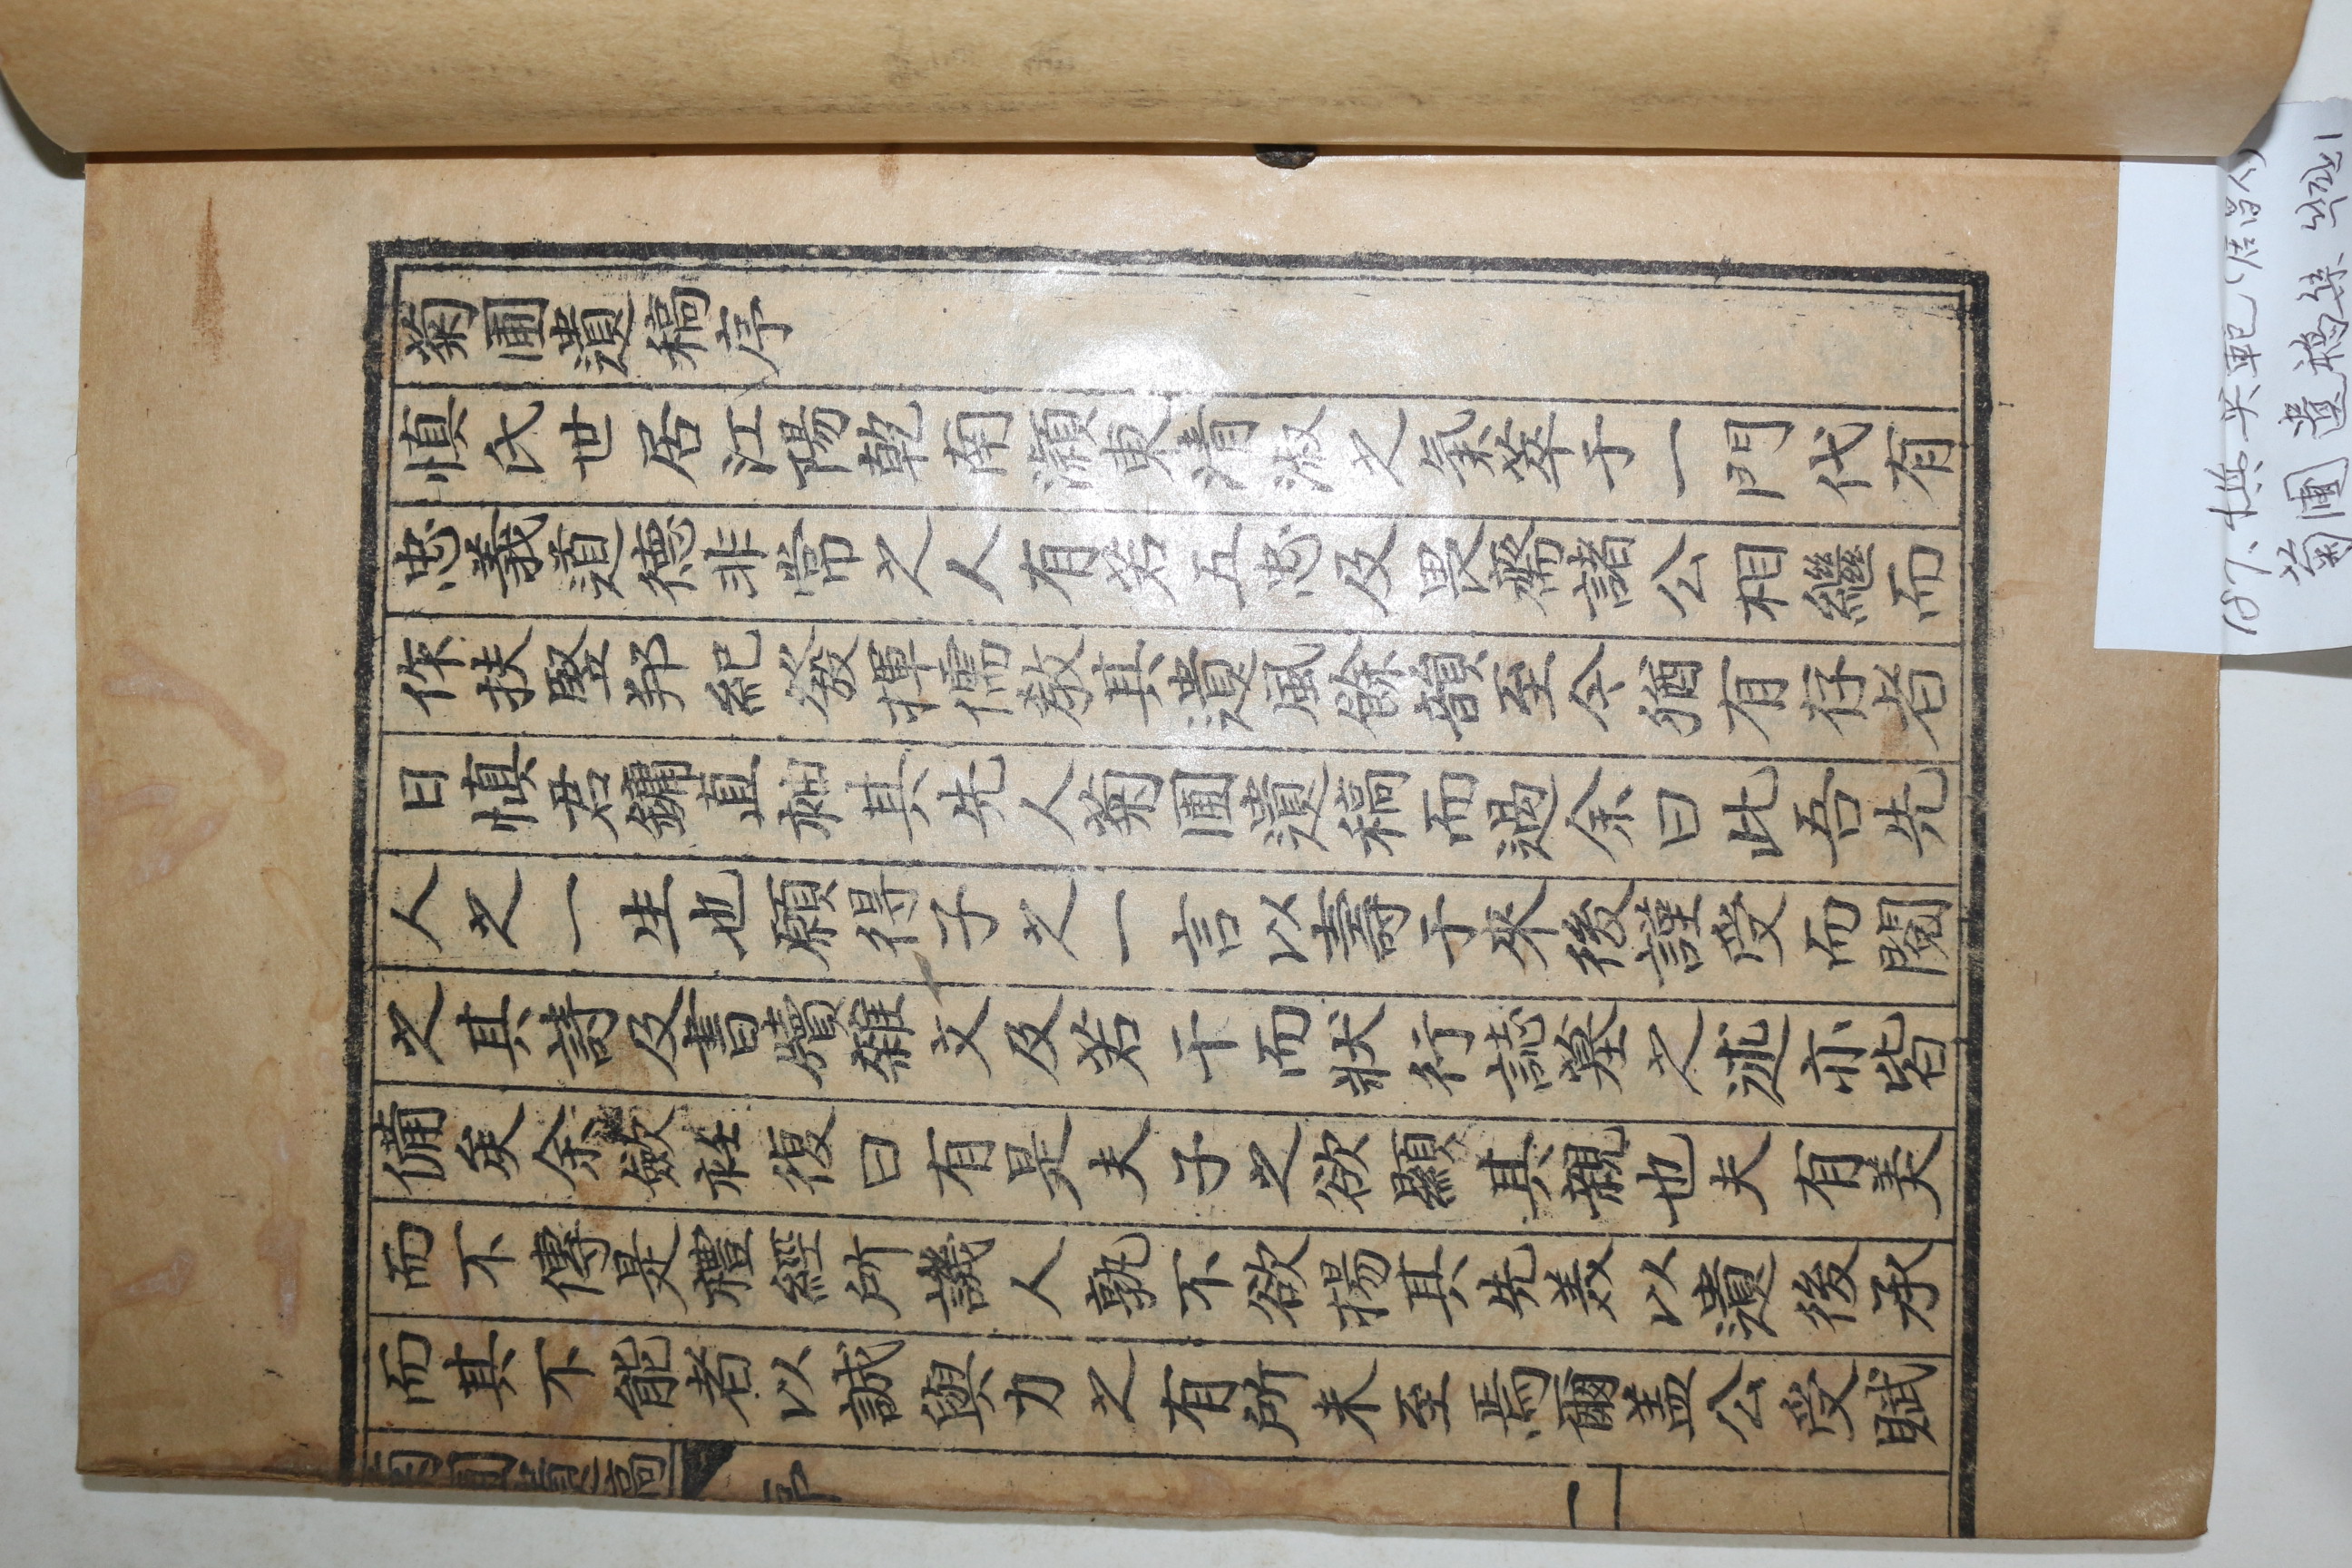 菊圃遺稿序
愼氏世居江陽乾南瀕東清淑之氣萃于一門代有
忠義道德非常之人有若五忠及畏齋諸公相繼而
作扶竪邦紀發揮儒教其遺風餘韻至今猶有存者
日愼君鏞直袖其先人菊圃遺稿而過余曰此吾先
人之一生也願得子之一言以壽于來後謹受而閱
之其詩及書牘雜文及若干而狀行誌墓之述亦皆
備矣余歛衽復曰有是夫子之欲顯其親也夫有美
而不傳是禮經所譏人孰不欲揚其先美以遺後承
而其不能者以誠與力之有所未至焉爾盖公受賦
菊圃遺稿 序 一
187. 愼英範(居昌人)
菊圃遺稿集